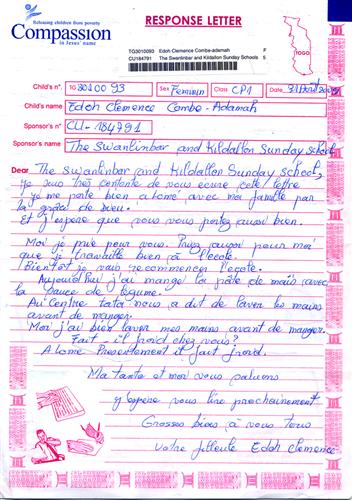 Releasing children from poverty
Compassion
in Jesus' name
RESPONSE LETTER
TOGO
TG3010093 Edoh Clemence Combe-ademah F
CU184791 The Swanlinbar and Kildallon Sunday Schools 5
Child's n° TG30100 93 Sex Feminin Class CP1 Date
Child's name Edoh Clemence Combe-Adamah
Sponsor's n° CU-184791
Sponsor's name The Swanlinbar and Kildallon Sunday school
Dear The swanlinbar and Kildallon Sunday school,
Je suis très contente de vous écrire cette lettre
Je me porte bien a Lomé avec ma famille par
la grâce de Dieu.
Et j'espère que vous vous portez aussi bien.
Moi je prie pour vous. Priez aussi pour moi
que je travaille bien à l'école.
Bientôt je vais recommencer l'école.
Aujourd'hui j'ai mangé la pâte de maïs avec
la sauce de légume.
Au Centre tata nous a dit de laver les mains
avant de manger.
Moi j'ai bien laver mes mains avant de manger.
Fait il froid chez vous?
A Lomé Présentement il fait froid.
Ma tante et moi vous saluons
J'espère vous lire prochainement
Grosses bises à vous tous
Votre filleule Edoh Clemence
Compassion